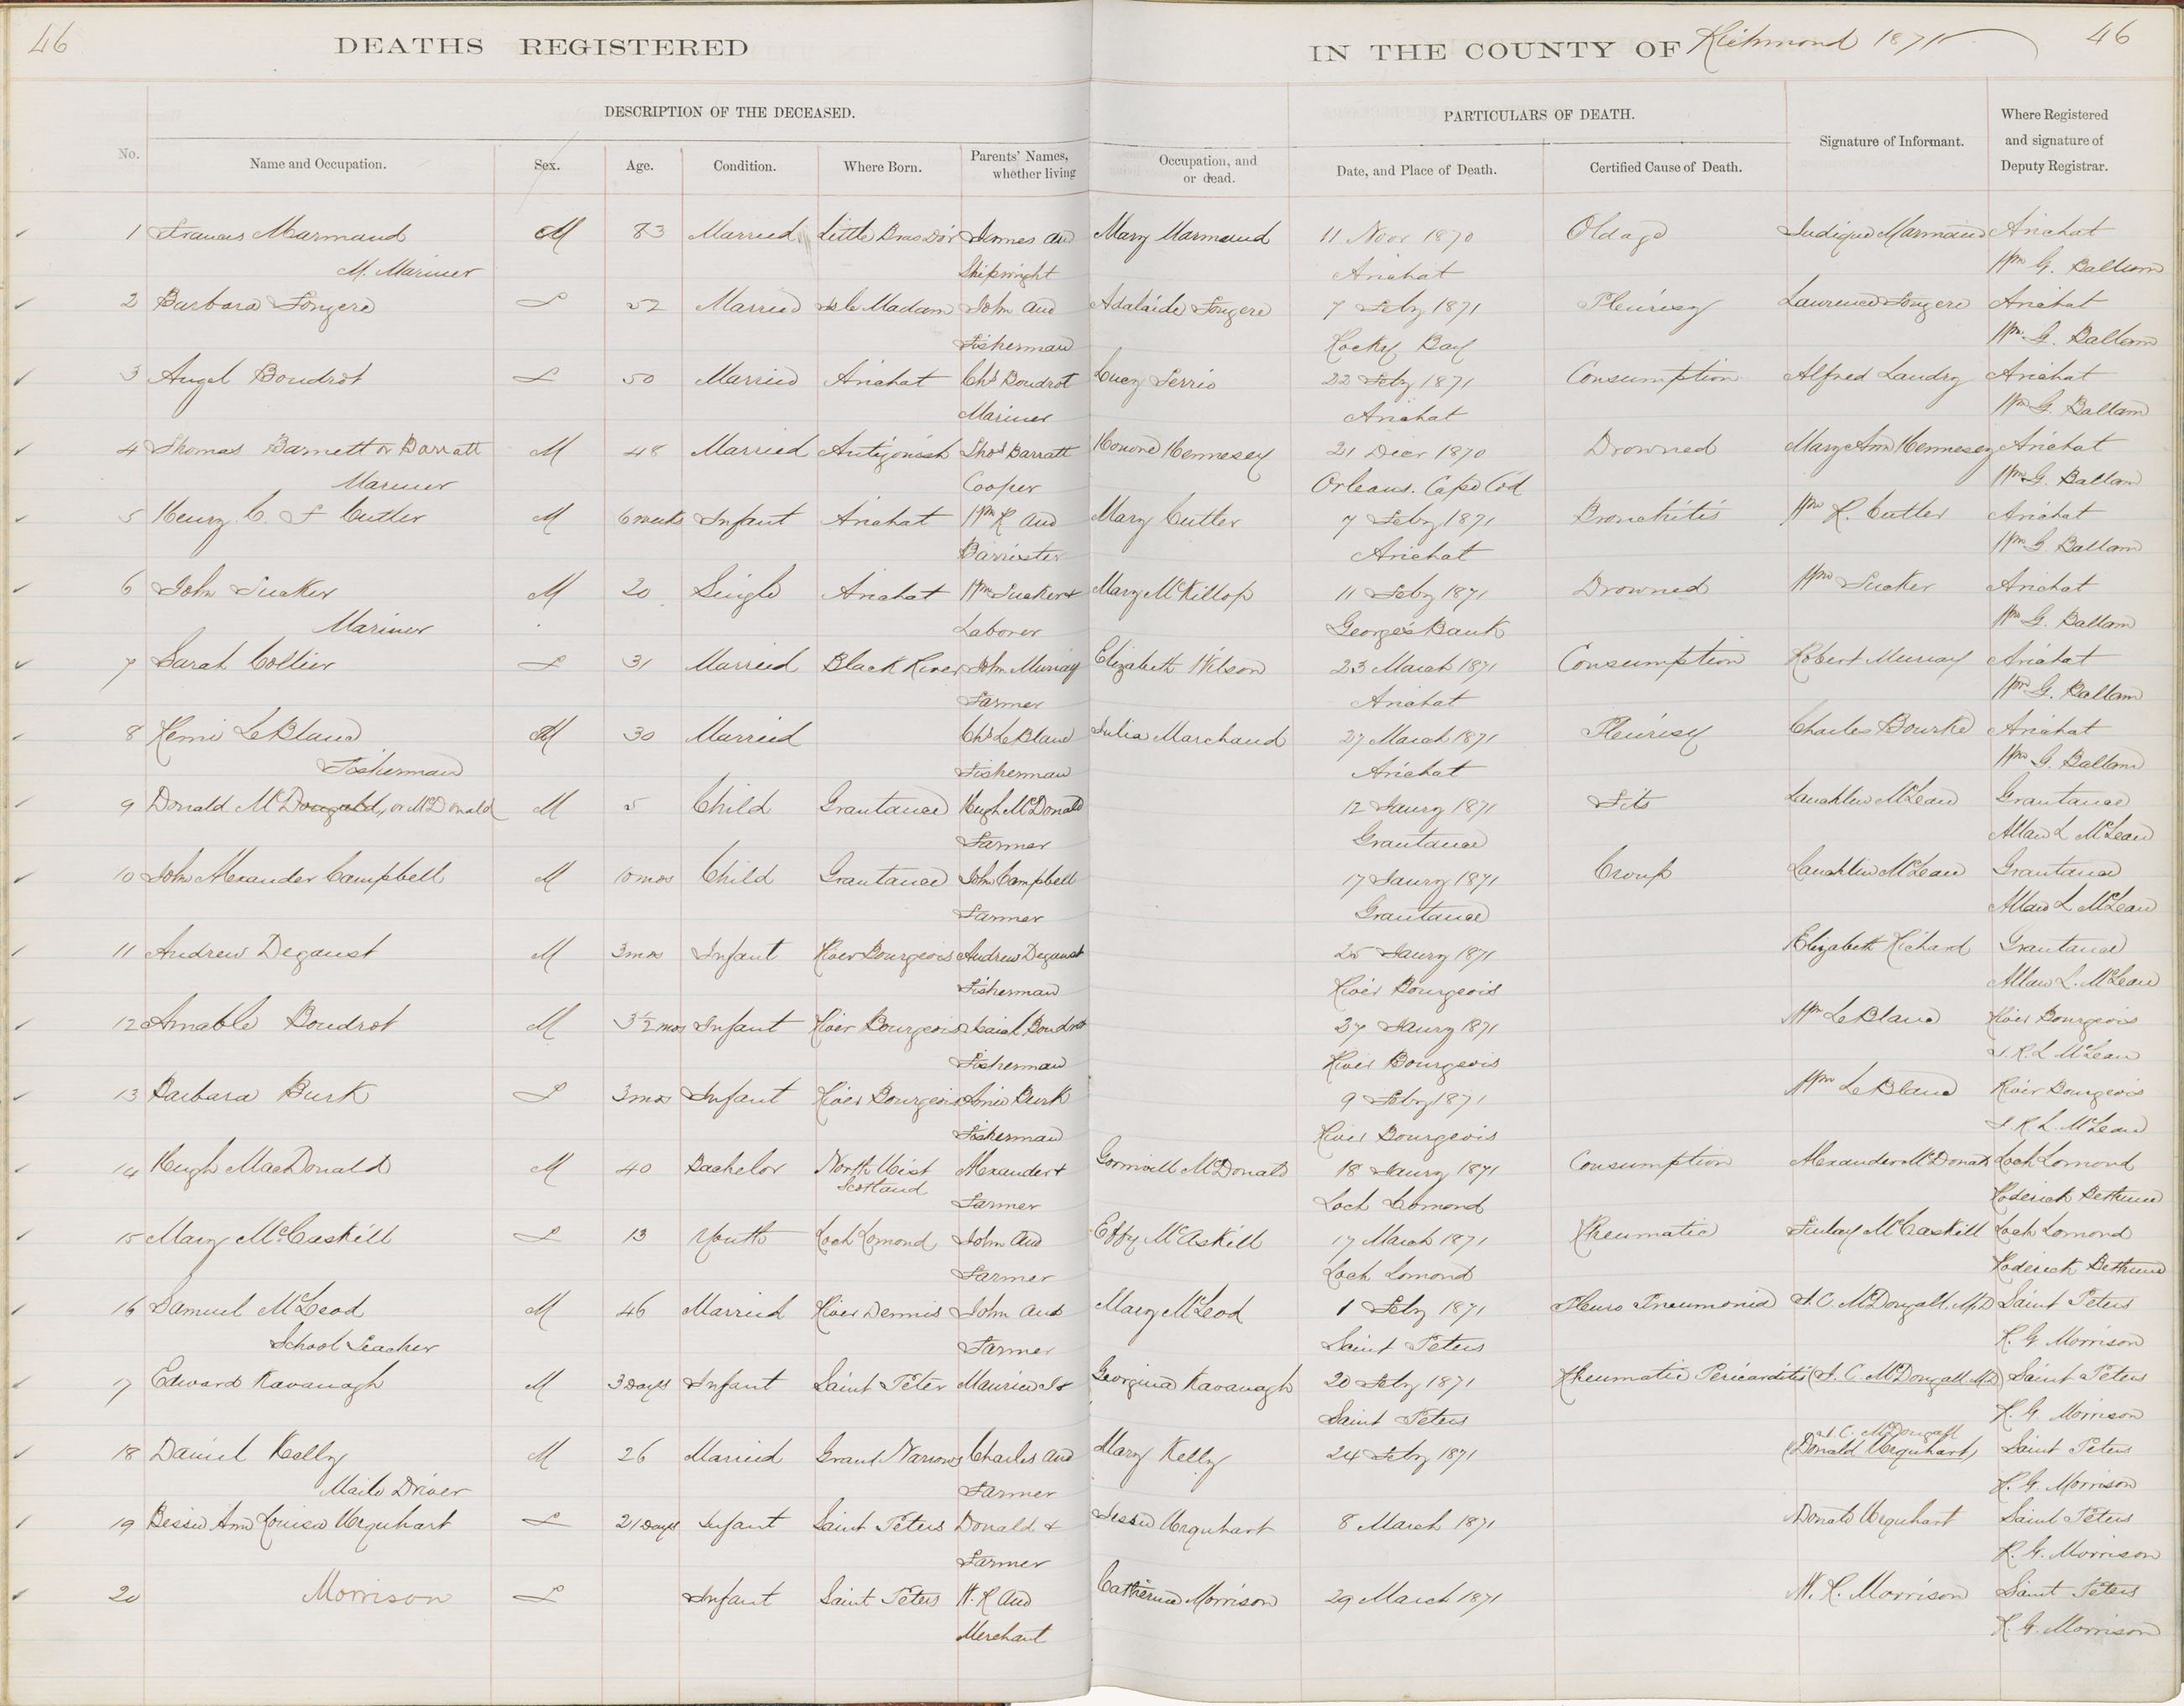 46 DEATHS REGISTERED IN THE COUNTY OF Richmond 1871 46
DESCRIPTION OF THE DECEASED. PARTICULARS OF DEATH.
No. Name and Occupation. Sex. Age. Condition. Where Born. Parents' Names, whether living Occupation, and or dead. Date, and Place of Death. Certified Cause of Death. Signature of Informant. Where Registered and signature of Deputy Registrar.
1 Frances Marmaud M 83 Married Little Bras D'or James and Mary Marmaud 11 Novr 1870 Old age Judique Marmaud Arichat
M. Mariner Shipwright Arichat Wm G. Ballam
2 Barbara Fougere F 52 Married Isle Madam John and Adalaide Fougere 7 Feby 1871 Pleurisy Laurence Fougere Arichat
Fisherman Rocky Bay Wm G. Ballam
3 Angel Boudrot F 50 Married Arichat Chs Boudrot Lucy Terrio 22 Feby 1871 Consumption Alfred Landry Arichat
Mariner Arichat Wm G. Ballam
4 Thomas Barnett or Barratt M 48 Married Antigonish Thos Barratt Honora Hennesey 21 Decr 1870 Drowned Mary Ann Hennesey Arichat
Mariner Cooper Orleans. Cape Cod Wm G. Ballam
5 Henry C. F Cutler M 6 weeks Infant Arichat Wm R and Mary Cutler 7 Feby 1871 Bronchitis Wm R. Cutler Arichat
Barrister Arichat Wm G. Ballam
6 John Tucker M 20 Single Arichat Wm Tucker & Mary McKillop 11 Feby 1871 Drowned Wm Tucker Arichat
Mariner Laborer George's Bank Wm G. Ballam
7 Sarah Collier F 31 Married Black River John Murray Elizabeth Wilson 23 March 1871 Consumption Robert Murray Arichat
Farmer Arichat Wm G. Ballam
8 Remi LeBlanc M 30 Married Chs LeBlanc Julia Marchand 27 March 1871 Pleurisy Charles Bourke Arichat
Fisherman Fisherman Arichat Wm G. Ballam
9 Donald McDougald, or McDonald M 5 Child Grantance Hugh McDonald 12 Jaury 1871 Fits Lauchlin McLean Grantance
Farmer Grantance Allan L McLean
10 John Alexander Campbell M 10 mos Child Grantance John Campbell 17 Jaury 1871 Croup Lauchlin McLean Grantance
Farmer Grantance Allan L McLean
11 Andrew Degaust M 3 mos Infant River Bourgeois Andrew Degaust 25 Jaury 1871 Elizabeth Richard Grantance
Fisherman River Bourgeois Allan L. McLean
12 Amable Boudrot M 3½ mos Infant River Bourgeois Isaiah Boudrot 27 Jaury 1871 Wm LeBlanc River Bourgeois
Fisherman River Bourgeois J. R. L McLean
13 Barbara Burk F 3 mos Infant River Bourgeois Burk 9 Feby 1871 Wm LeBlanc River Bourgeois
Fisherman River Bourgeois J. R L. McLean
14 Hugh MacDonald M 40 Bachelor North Uist Scotland Alexander & McDonald 18 Jaury 1871 Consumption Alexander McDonald Loch Lomond
Farmer Loch Lomond Roderick Bethune
15 Mary McCaskill F 13 Youth Loch Lomond John and Effy McAskill 17 March 1871 Rheumatic Finlay McCaskill Loch Lomond
Farmer Loch Lomond Roderick Bethune
16 Samuel McLeod M 46 Married River Dennis John and Mary McLeod 1 Feby 1871 Pleuro Pneumonia A. C. McDougall, M.D Saint Peters
School Teacher Farmer Saint Peters R. G. Morrison
17 Edward Kavanagh M 3 Days Infant Saint Peter Maurice Georgina Kavanagh 20 Feby 1871 Rheumatic Pericarditis (A. C. McDougall M.D) Saint Peters
Saint Peters R. G. Morrison
A C. McDougall
18 Daniel Kelly M 26 Married Grant Narrows Charles and Mary Kelly 24 Feby 1871 (Donald Urquhart) Saint Peters
Mail Driver Farmer R. G. Morrison
19 Bessie Ann Louisa Urquhart F 21 Days Infant Saint Peters Donald & Jessie Urquhart 8 March 1871 Donald Urquhart Saint Peters
Farmer R. G. Morrison
20 Morrison F Infant Saint Peters W. R and Catherine Morrison 29 March 1871 W. R. Morrison Saint Peters
Merchant R. G. Morrison